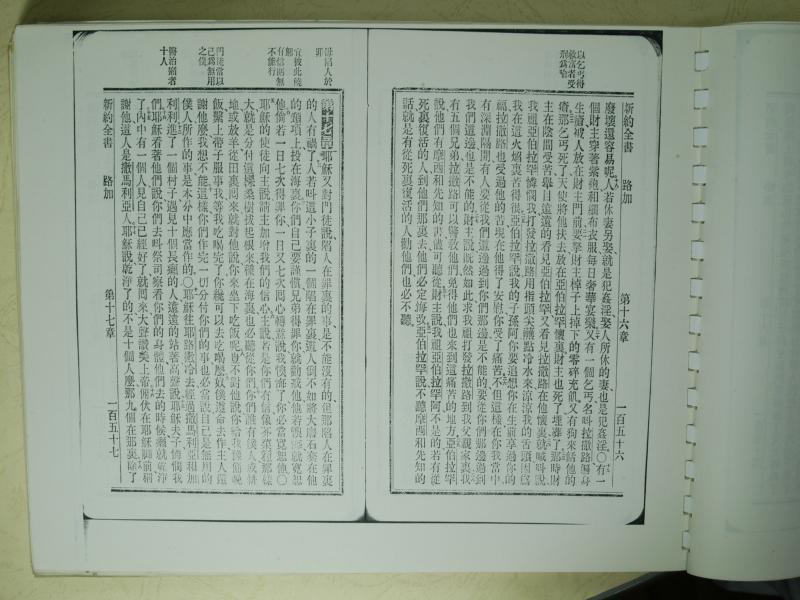 新約全書　路加　第十六章　一百五十六
以乞丐得
救富者受
刑爲喻
廢壞還容易呢人若休妻另娶就是犯姦淫娶人所休的妻也是犯姦淫〇有一
個財主穿著紫袍和細布衣服每日奢華宴樂又有一個乞丐名呌拉撒路遍身
生瘡被人放在財主門前要拏財主棹子上掉下的零碎充飢又有狗來餂他的
瘡那乞丐死了天使將他扶去放在亞伯拉罕懷裏財主也死了埋葬了那時財
主在陰間受苦舉目遠遠的看見亞伯拉罕又看見拉撒路在他懷裏就喊呌說
我祖亞伯拉罕憐憫我打發拉撒路用指頭尖蘸點冷水來涼涼我的舌頭因爲
我在這火燄裏苦得很亞伯拉罕說我的子孫阿你要追想你在生前享過你的
福拉撒路也受過他的苦現在他得了安慰你受了痛苦不但這樣在我當中
有深淵隔開有人要從我們這邊過到你們那邊是不能的要從你們那邊過到
我們這邊也是不能的財主說旣然如此求我祖打發拉撒路到我父親家裏我
有五個兄弟拉撒路可以警敎他們免得他們也來到這痛苦的地方亞伯拉罕
說他們有摩西和先知的書儘可聽從財主說我祖亞伯拉罕阿不是的若有從
死裏復活的人到他們那裏去他們必定悔改亞伯拉罕說不聽摩西和先知的
話就是有從死裏復活的人勸他們也必不聽
陷人於
罪
宜彼此饒
恕
有信而無
不能行
門徒當以
己爲無用
之僕
醫治癩者
十人
第十七章耶穌又對門徒說陷人在罪裏的事是不能沒有的但那陷人在罪裏
的人有禍了人若呌這小子裏的一個陷在罪裏這人倒不如將大磨石拴在他
的頸項上投在海裏你們自己要謹愼兄弟得罪你就勸戒他他若懊悔就寬恕
他倘若一日七次得罪你一日又七次囘心轉意說我懊悔了你必當寬恕他〇
耶穌的使徒向主說請主加增我們的信心主說若是你們有信像芥菜種那樣
大就是分付這棵桑樹拔起根來種在海裏也必聽從你們你們誰有僕人或耕
地或放羊從田裏囘來就對他說你來坐下吃飯呢豈不對他說你給我豫備晚
飯繫上帶子服事我等我吃喝完了你纔可以去吃喝麼奴僕遵命去作主人還
謝他麼我想不能這樣你們作完一切分付你們的事也必當說自己是無用的
僕人所作的事是本分中應當作的〇耶穌往耶路撒冷去經過撒馬利亞和加
利利進了一個村子遇見十個長癩的人遠遠的站著高聲說耶穌夫子憐憫我
們耶穌看著他們說你們去呌祭司察看你們的身體他們去的時候癩就乾淨
了內中有一個人見自己已經好了就囘來大聲讚美上帝俯伏在耶穌脚前稱
謝他這人是撒馬利亞人耶穌說乾淨了的不是十個人麼那九個在那裏除了
新約全書　路加　第十七章　一百五十七